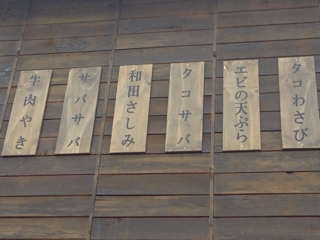 タコわさび
エビの天ぷら
タコサバ
和田さしみ
サバサバ
牛肉やき